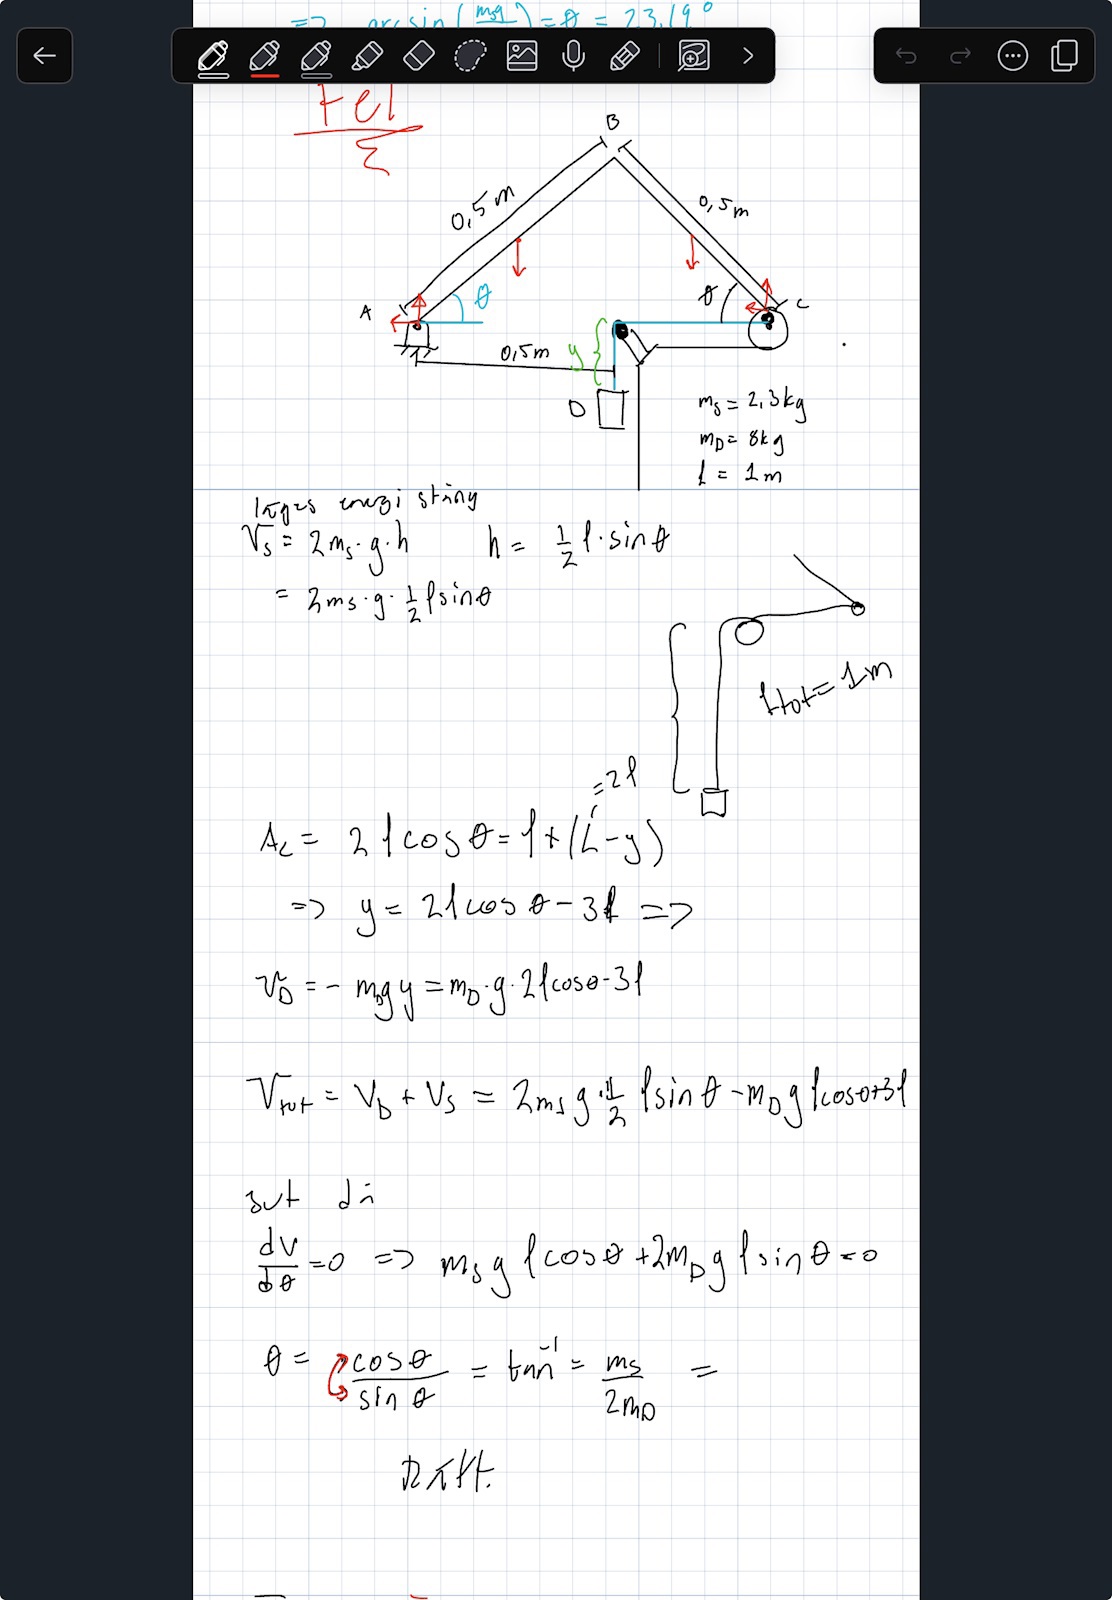 => arcsin(msg/ ) = θ = 23,19°
Fel
B
0,5m
0,5m
A
θ
θ
C
y
0,5m
D
ms = 2,3kg
mD = 8kg
l = 1m
lägesenergi stång
Vs = 2ms·g·h
h = 1/2 l·sinθ
= 2ms·g·1/2 lsinθ
ltot = 1m
=2l
Ac = 2lcosθ = l+(L-y)
=> y = 2lcosθ - 3l =>
VD = -mDgy = mD·g·2lcosθ-3l
Vtot = VD + Vs = 2msg·1/2 lsinθ - mDglcosθ+3l
dV/dθ = 0 => msglcosθ + 2mDglsinθ = 0
θ = cosθ/sinθ = tan⁻¹ = ms/2mD =